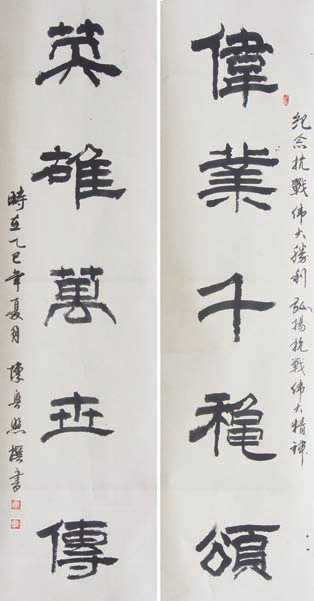 紀念抗戰伟大勝利 弘揚抗戰伟大精神
偉業千穐頌
英雄萬世傳
時在乙巳年夏月 陳 撰書